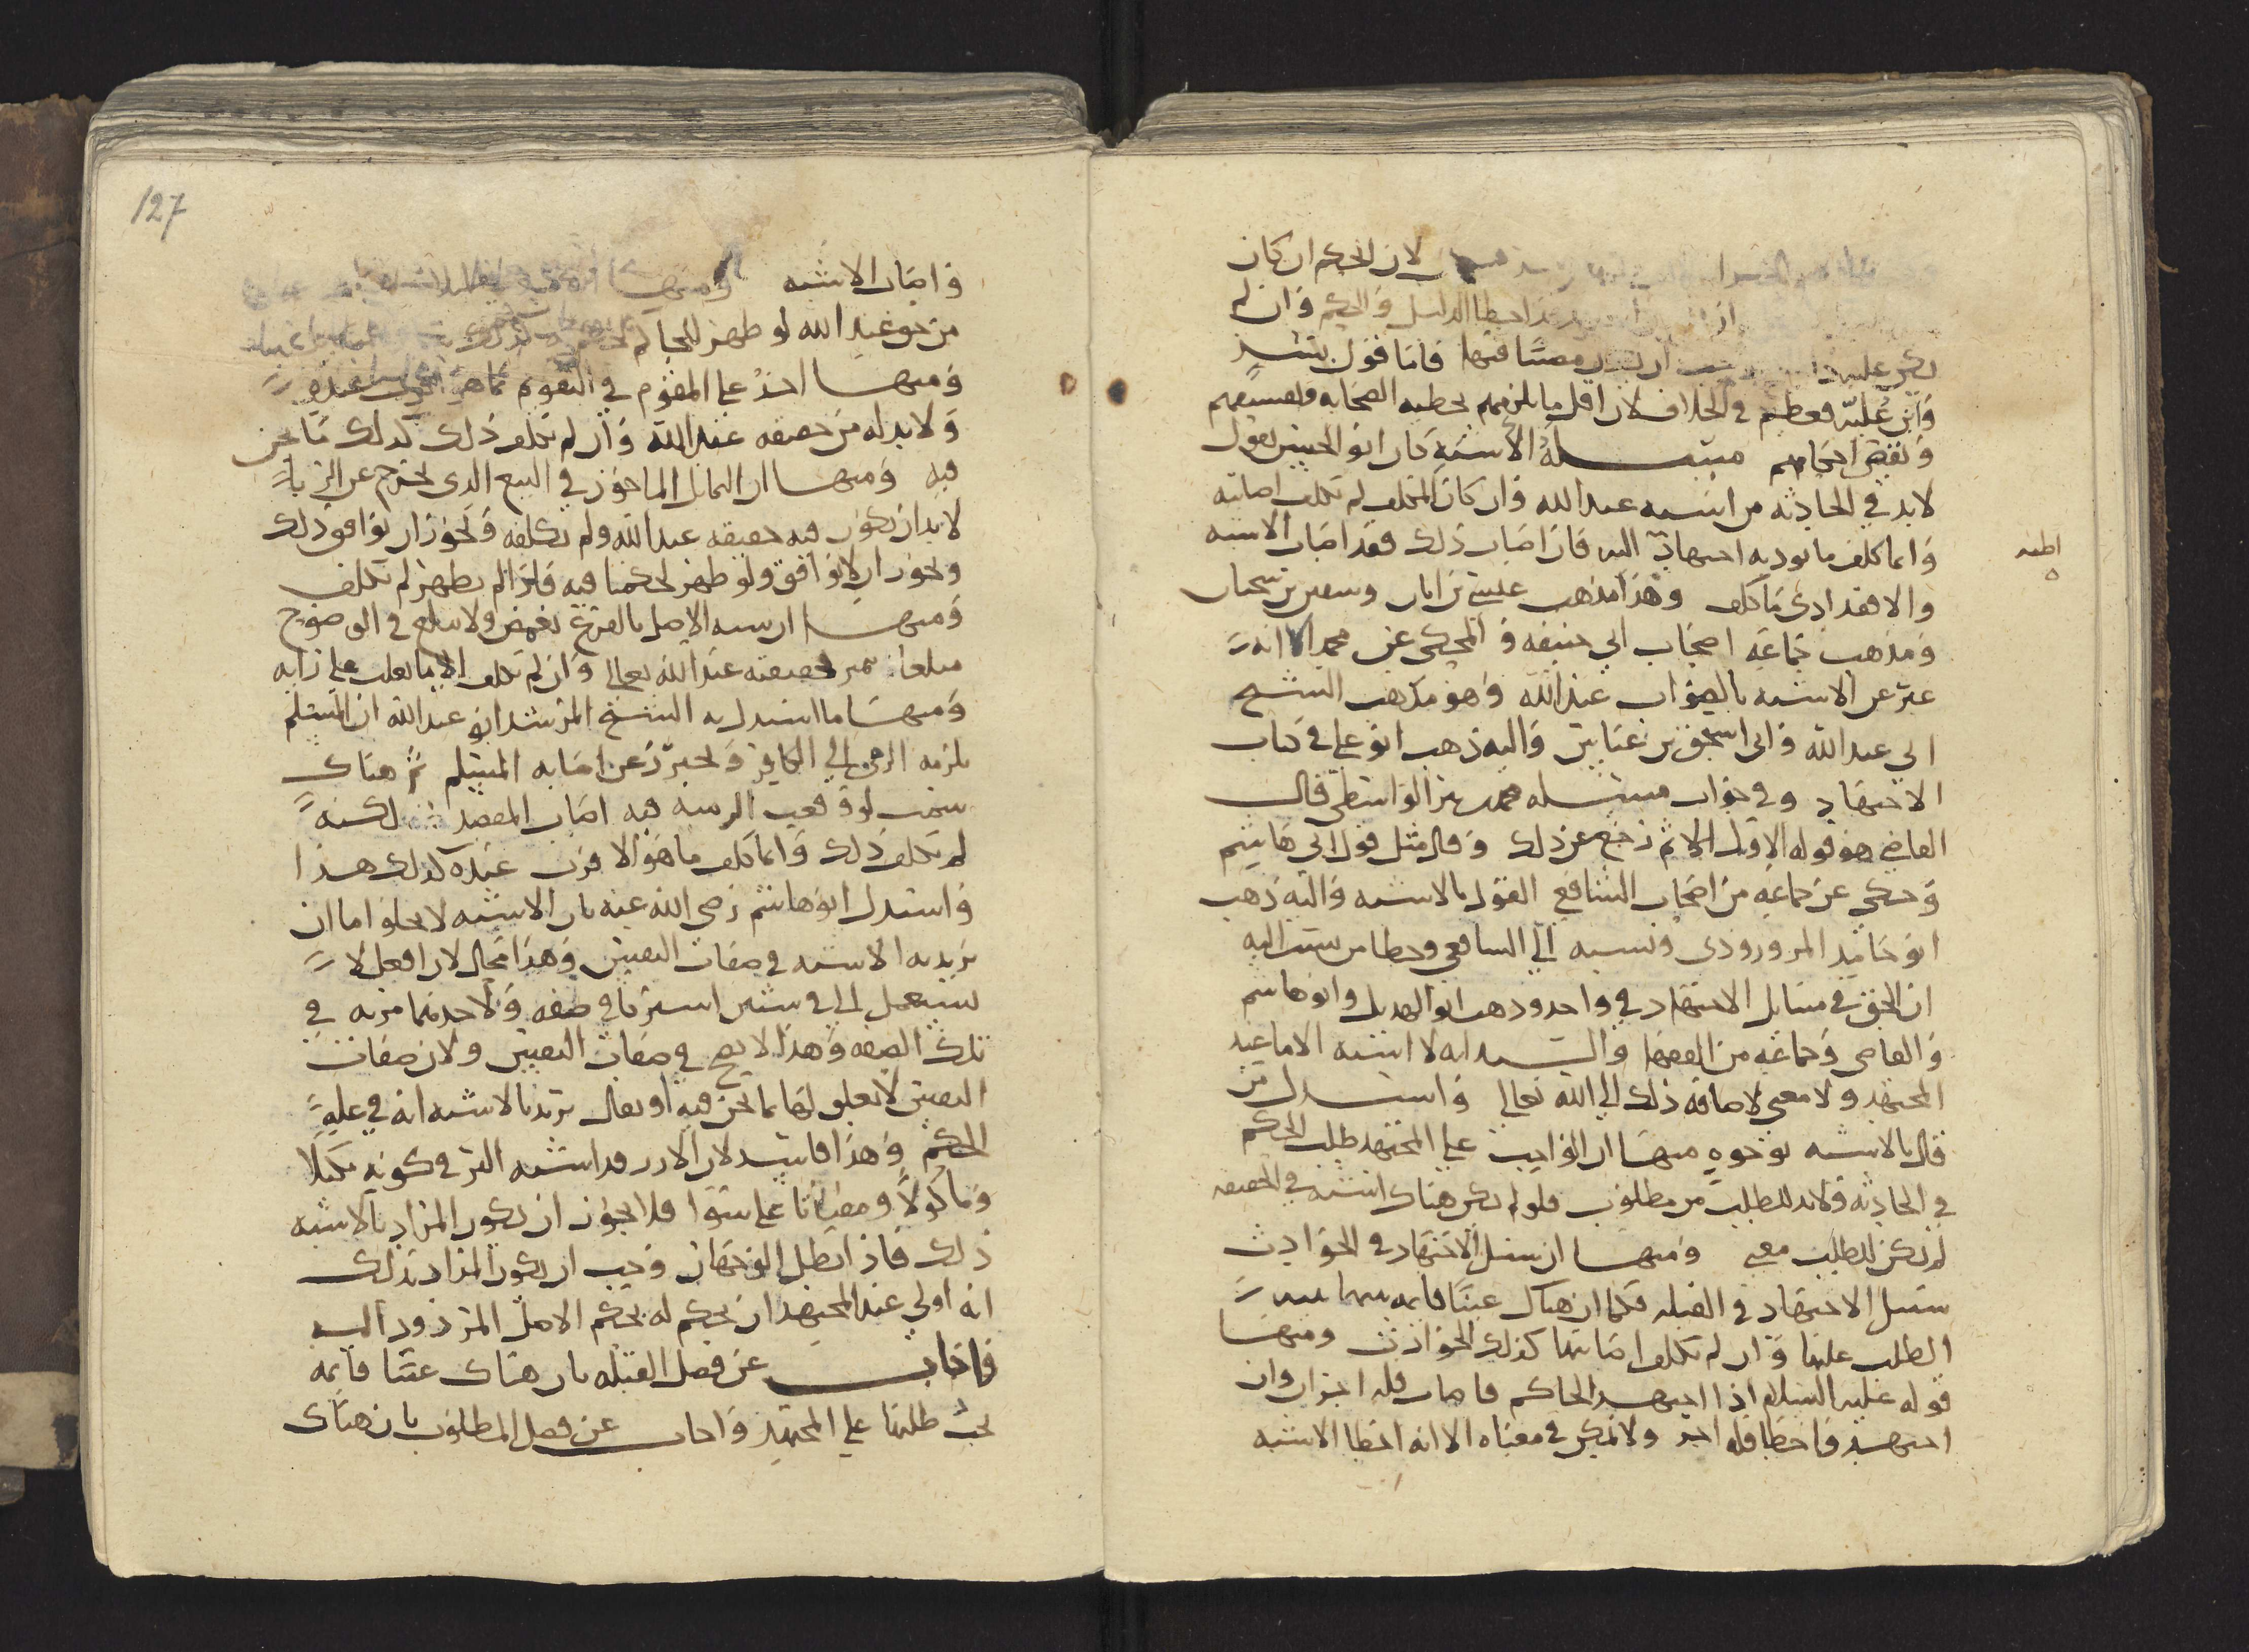 لان الحكم ان كان
اخطا الدليل والحكم وان لم
يكن عليه مصيبا فيها فاما قول بشر
وابن علية فعظيم في الخلاف لان اقل ما يلزمهم تخطيه الصحابه وتفسيقهم
ونقض احكامهم مسئلة الاشبه كان ابو الحسين يقول
لابد في الحادثه من اشبه عند الله وان كان المكلف لم يكلف اصابته
وانما كلف ما يوديه اجتهاده اليه فان اصاب ذلك فقد اصاب الاشبه
والا فقد ادى ما كلف وهذا مذهب عيسى بن ابان وسفين بن سحبان
ومذهب جماعه اصحاب ابي حنيفه والمحكي عن محمد الا انه
عبر عن الاشبه بالصواب عند الله وهو مذهب الشيخ
ابي عبد الله وابي اسحق بن عياش واليه ذهب ابو علي في كتاب
الاجتهاد وفي جواب مسئله محمد بن الواسطي قال
القاضي هو قوله الاول الا ثم رجع عن ذلك وقال مثل قول ابي هاشم
وحكي عن جماعه من اصحاب الشافعي القول بالاشبه واليه ذهب
ابو حامد المروروذي ونسبه الى الشافعي وخطا من نسب اليه
ان الحق في مسايل الاجتهاد في واحد وذهب ابو الهذيل وابو هاشم
والقاضي وجماعه من الفقها والسيد انه لا اشبه الا ما عند
المجتهد ولا معنى لاضافه ذلك الى الله تعالى واستدل من
قال بالاشبه بوجوه منها ان الواجب على المجتهد طلب الحكم
في الحادثه ولابد للطلب من مطلوب فلو لم يكن هناك اشبه في الحقيقه
لم يكن للطلب معنى ومنها ان سبيل الاجتهاد في الحوادث
سبيل الاجتهاد في القبله فكما ان هناك عينا قايمه
الطلب عليها وان لم يكلف اصابتها كذلك الحوادث ومنها
قوله عليه السلام اذا اجتهد الحاكم فاصاب فله اجران وان
اجتهد فاخطا فله اجر ولا يمكن في معناه الا انه اخطا الاشبه
اطبه
127
واصاب الاشبه ومنها
من هو عند الله لو ظهر للحاكم
ومنها اخذ على المقوم في التقويم ما هو اقرب عنده
ولابد له من حقيقه عند الله وان لم يكلف ذلك كذلك ما نحن
فيه ومنها ان التماثل الماخوذ في البيع الذي يخرج عن الربا
لابد ان يكون فيه حقيقه عند الله ولم يكلفه ويجوز ان يوافق ذلك
ويجوز ان لا يوافق ولو ظهر لحكمنا فيه فاذا لم يظهر لم يكلف
ومنها ان شبه الاصل بالفرع يغمض ولا يبلغ في الوضوح
مبلغا حقيقته عند الله تعالى وان لم يكلف الا ما يغلب على رايه
ومنها ما استدل به الشيخ المرشد ابو عبد الله ان المسلم
يلزمه الرمي الى الكافر ويحترز عن اصابه المسلم ثم هناك
سمت لو وقعت الرميه فيه اصاب المقصد لكنه
لم يكلف ذلك وانما كلف ما هو الاقرب عنده كذلك هذا
واستدل ابو هاشم رضي الله عنه بان الاشبه لا يخلوا اما ان
يريد به الاشبه في صفات النفس وهذا محال لان افعل لا
يستعمل الا في شيين اشتركا في صفه ولاحدهما مزيه في
تلك الصفه وهذا لا يصح في صفات النفس ولان صفات
النفس لا تعلق لها بما نحن فيه او يقال يريد بالاشبه انه في عله
الحكم وهذا فاسد لان الارز قد اشبه البر في كونه مكيلا
وماكولا ومقتاتا على سوا فلا يجوز ان يكون المراد بالاشبه
ذلك فاذا بطل الوجهان وجب ان يكون المراد بذلك
انه اولى عند المجتهد ان يحكم له بحكم الاصل المردود اليه
فاجاب عن فصل القبله بان هناك عينا قايمه
يجب طلبها على المجتهد واجاب عن فصل المطلوب بان هناك